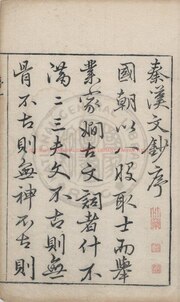 秦漢文鈔序
國朝以時取士而舉
業家嫺古文詞者什不
滿二三夫文不古則無
骨不古則無神不古則